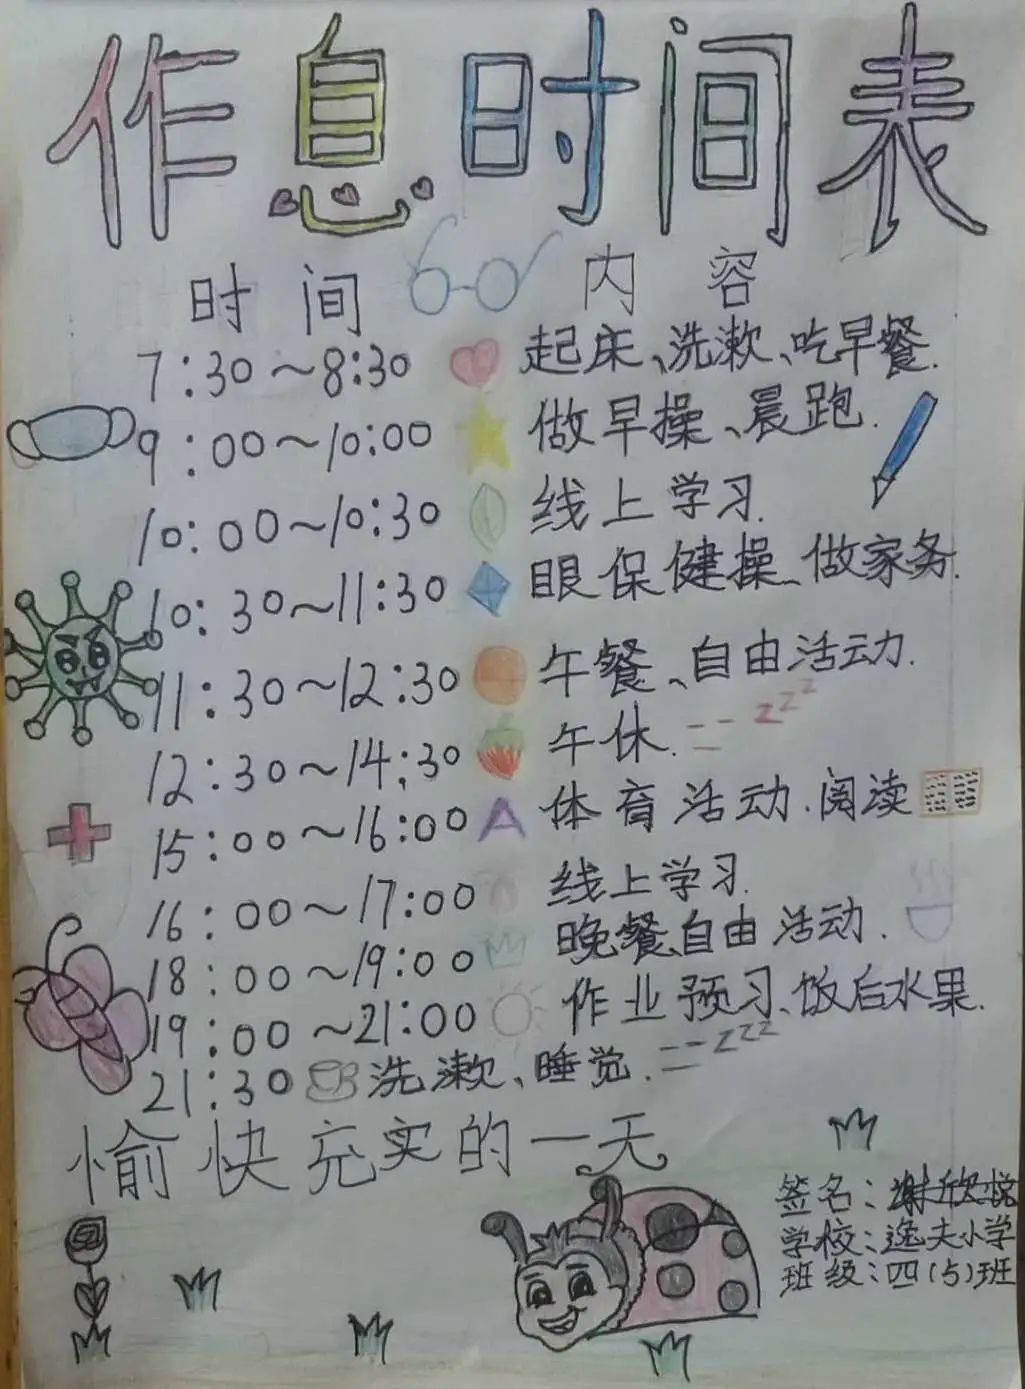 作息时间表
时间 内容
7:30~8:30 起床、洗漱、吃早餐.
9:00~10:00 做早操、晨跑.
10:00~10:30 线上学习.
10:30~11:30 眼保健操、做家务.
11:30~12:30 午餐、自由活动.
12:30~14:30 午休. zzz
15:00~16:00 A 体育活动.阅读
16:00~17:00 线上学习.
18:00~19:00 晚餐、自由活动.
19:00~21:00 作业预习、饭后水果.
21:30 洗漱、睡觉. zzz
愉快充实的一天
签名:谢欣悦
学校:逸夫小学
班级:四(5)班